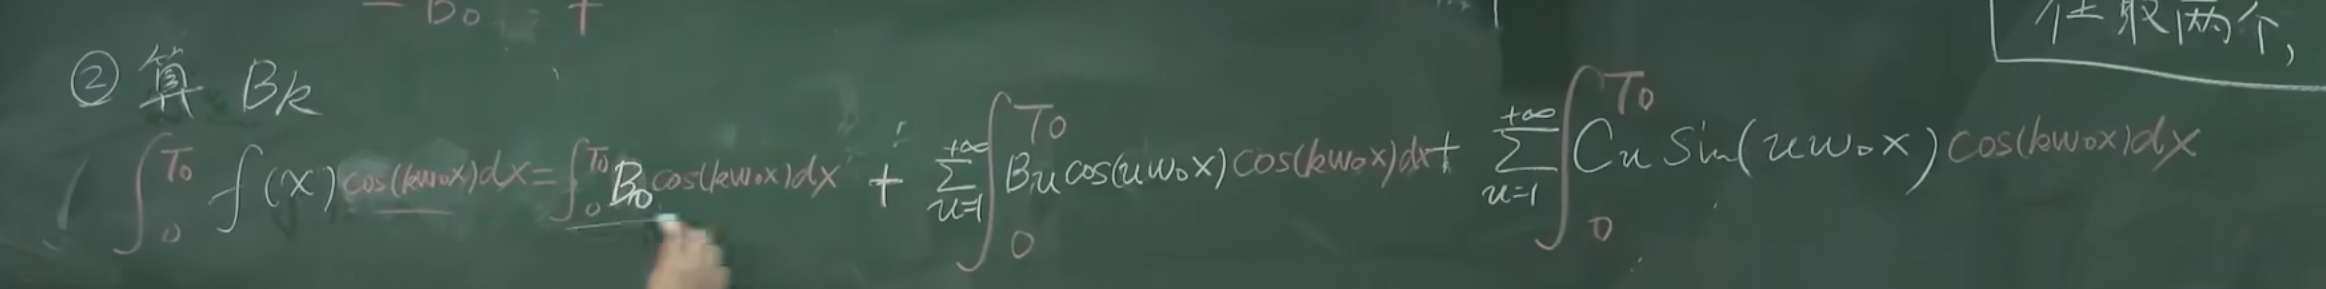 - B₀ +
任取两个,
② 算 Bk
∫₀^T₀ f(x)cos(kω₀x)dx=∫₀^T₀ B₀cos(kω₀x)dx + Σ_{n=1}^{+∞} ∫₀^T₀ Bₙcos(nω₀x)cos(kω₀x)dx+ Σ_{n=1}^{+∞} ∫₀^T₀ Cₙ Sin(nω₀x)cos(kω₀x)dx